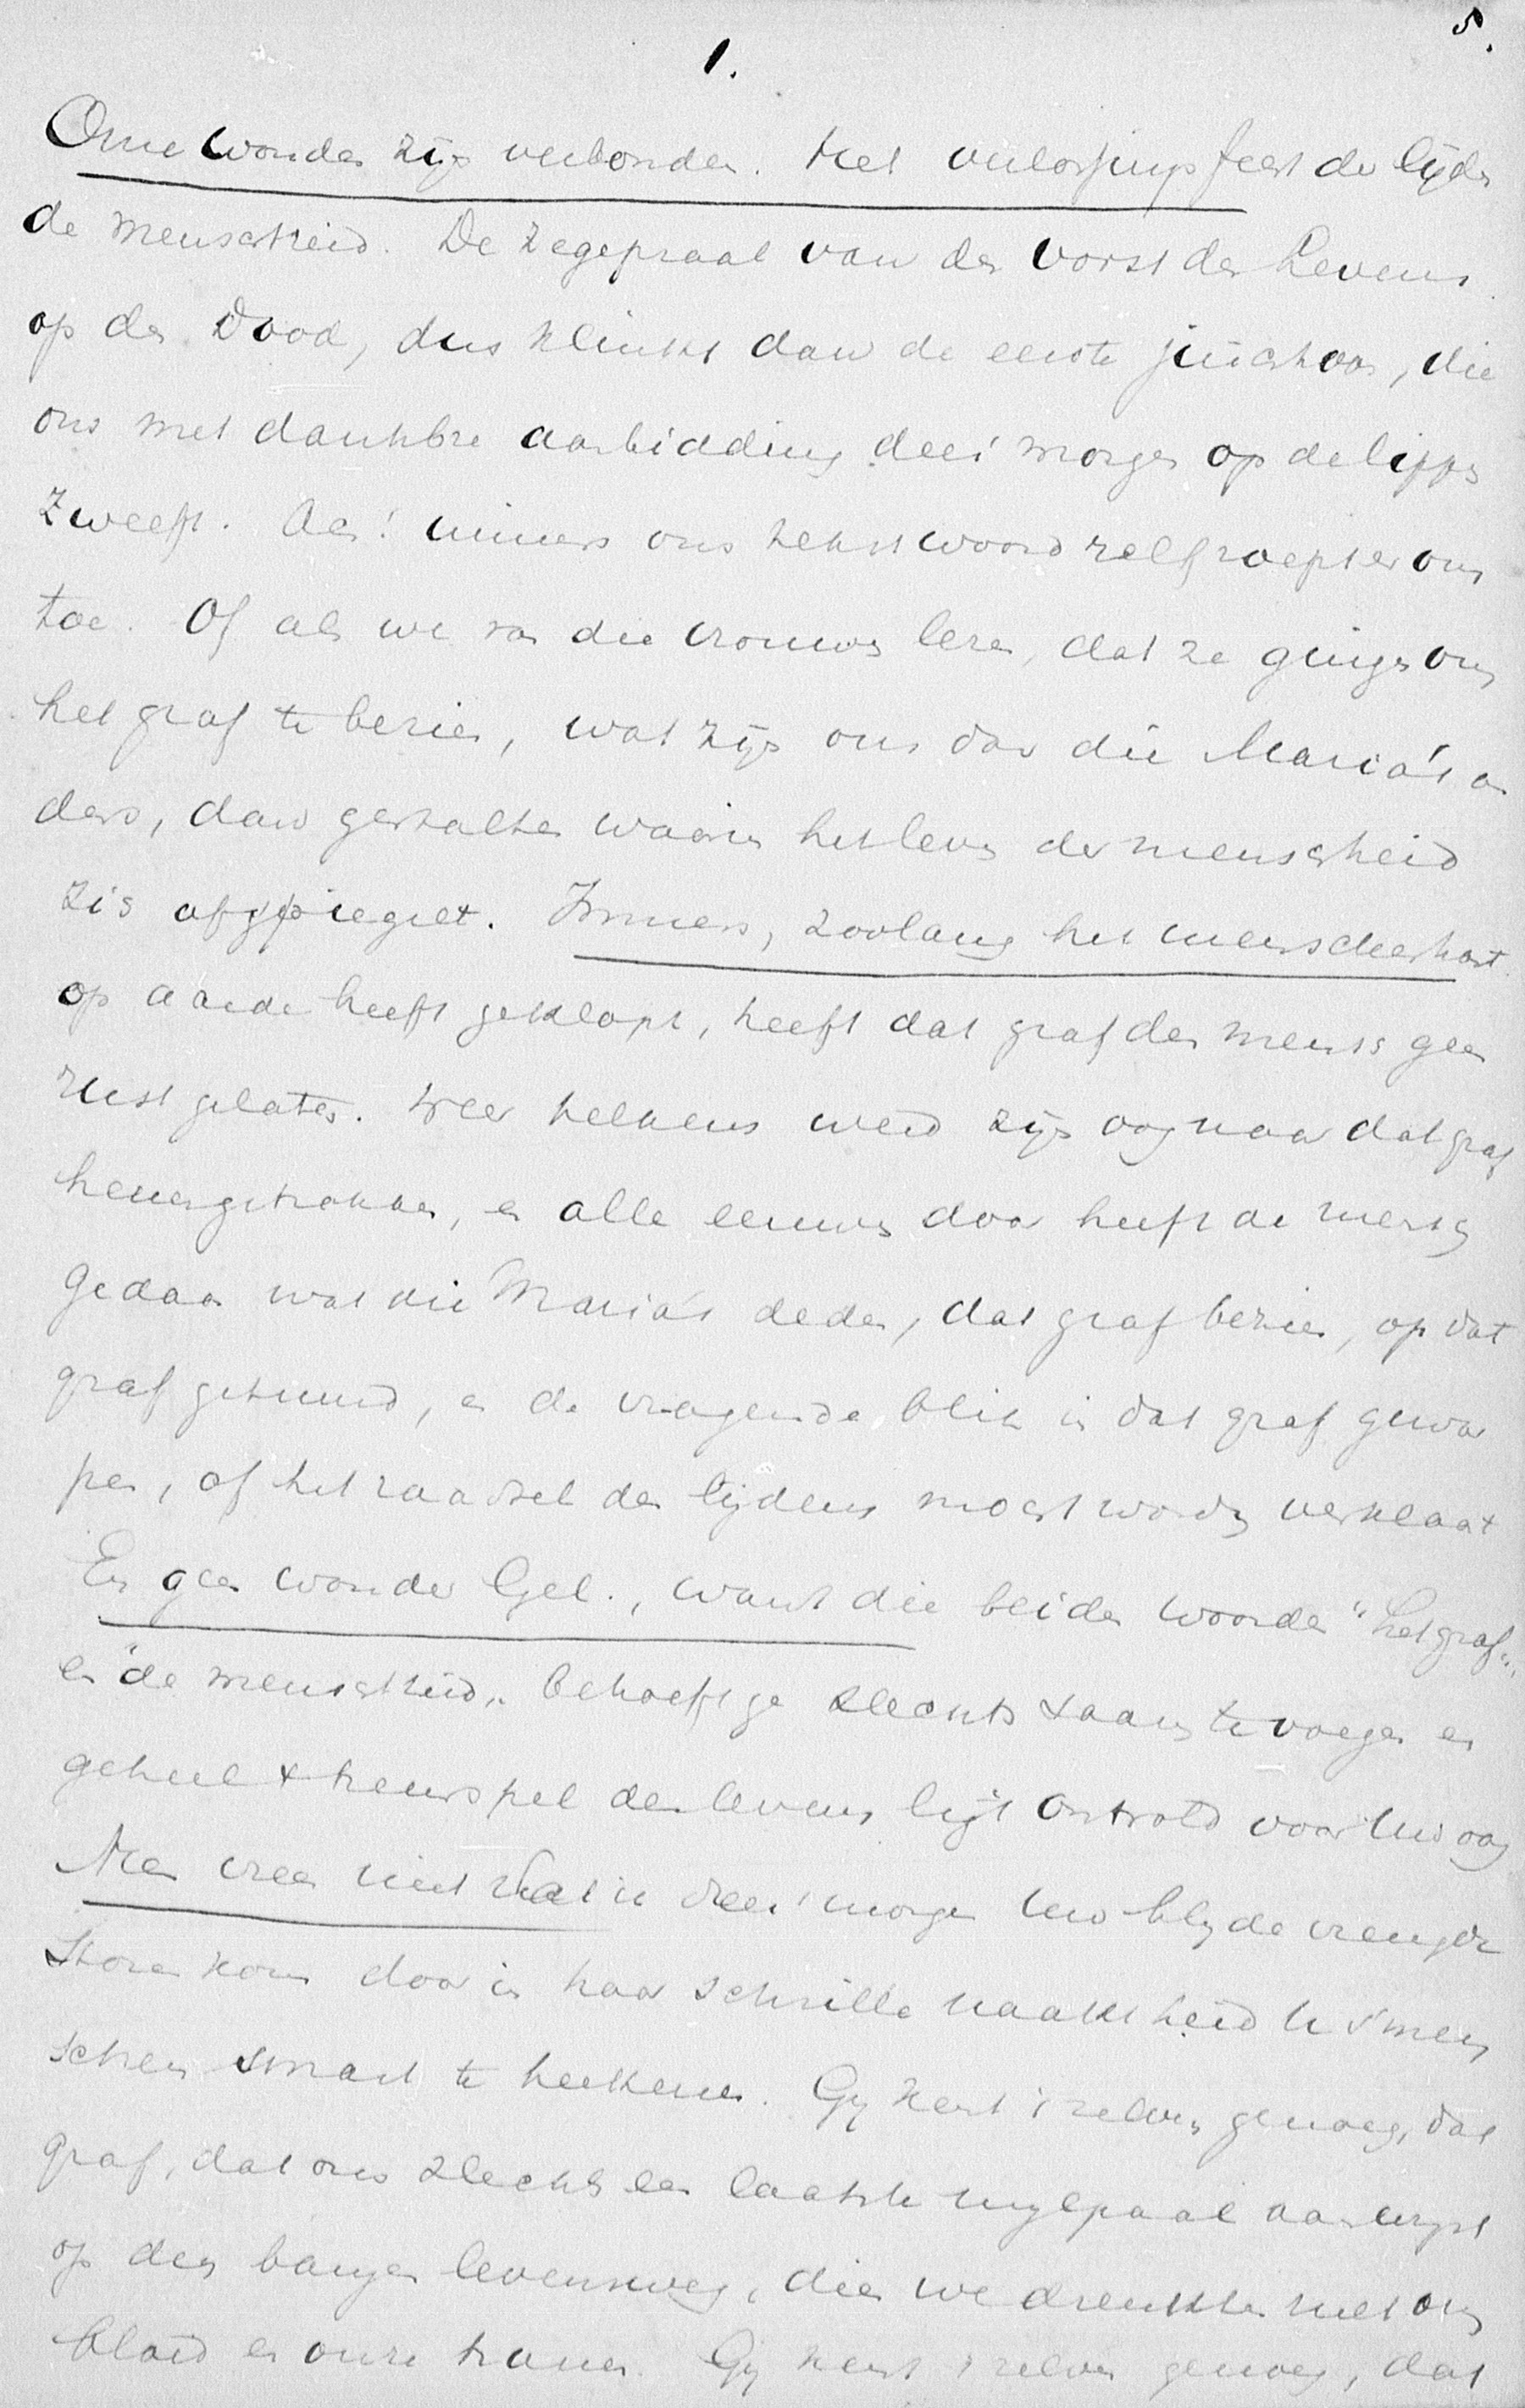 5.
1.
Onze wonden zijn verbonden. Het verlossingsfeest der lijden
de menscheid. De zegepraal van den Vorst des Levens
op den Dood, dus klinkt dan de eerste juichtoon, die
ons met dankbre aanbidding deez' morgen op de lippen
zweeft. Ach! immers ons tekstwoord zelf roept er ons
toe. Of als we van die vrouwen lezen, dat ze gingen om
het graf te bezien, wat zijn ons dan die Maria's an
ders, dan gestalten waarin het leven der menscheid
zich afspiegelt. Immers, zoolang het menschenhart
op aarde heeft geklopt, heeft dat graf den mensch geen
rust gelaten. Weer telkens werd zijn oog naar dat graf
henengetrokken, en alle eeuwen door heeft de mensch
gedaan wat die Maria's deden, dat graf bezien, op dat
graf getuurd, en de vragende blik in dat graf gewor
pen, of het raadsel des lijdens mocht worden verklaart
En geen wonder Gel., want die beiden woorden "het graf"
en "de menscheid" behoeft ge slechts saam te voegen en
geheel 't treurspel des levens ligt ontrold voor Uw oog
Neen vrees niet dat ik deez' morgen Uw blyde vreugde
storen kom door in haar schrille naaktheid U 's men
schen smart te teekenen. Gy kent 't zelven genoeg, dat
graf, dat ons slechts een laatste mylpaal aanwyst
op den bangen levensweg, dien we drenkten met ons
bloed en onze tranen. Gy kent 't zelven genoeg, dat